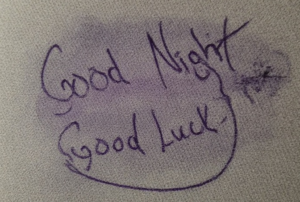 Good Night
Good Luck.